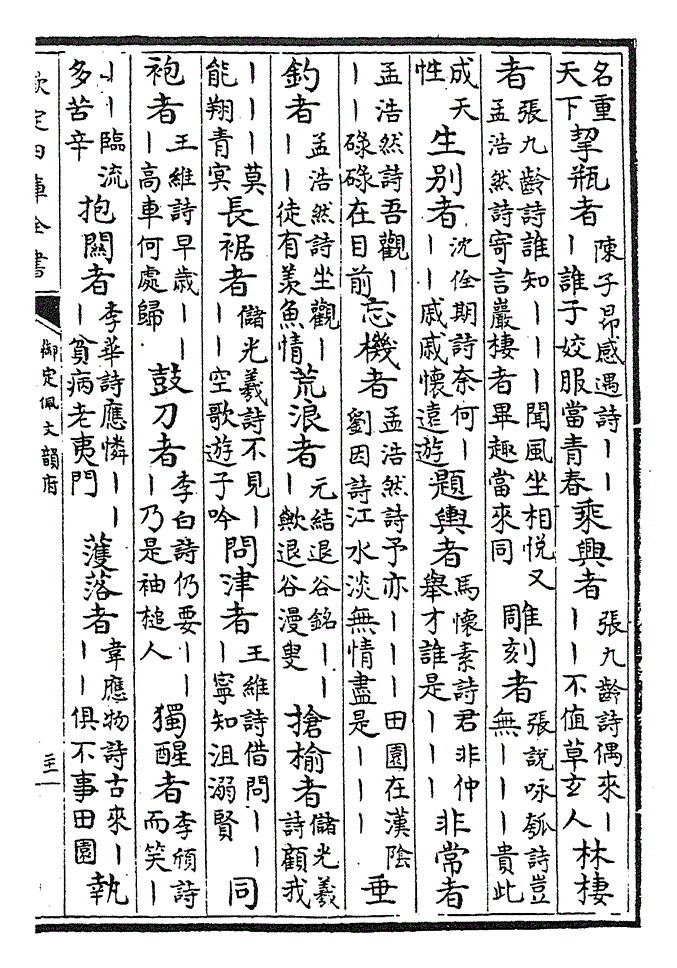 名重天下挈瓶者陳子昂感遇詩｜｜｜誰子姣服當青春乘興者張九齡詩偶來｜｜｜不值草玄人林棲
者張九齡詩誰知｜｜｜聞風坐相悅又孟浩然詩寄言巖棲者畢趣當來同雕刻者張說咏瓠詩豈無｜｜｜貴此
成天性生别者沈佺期詩奈何｜｜｜戚戚懷遠遊題輿者馬懷素詩君非仲舉才誰是｜｜｜非常者
孟浩然詩吾觀｜｜｜碌碌在目前忘機者孟浩然詩予亦｜｜｜田園在漢陰劉因詩江水淡無情盡是｜｜｜垂
釣者孟浩然詩坐觀｜｜｜徒有羡魚情荒浪者元結退谷銘｜｜｜歟退谷漫叟搶榆者儲光羲詩顧我
｜｜｜莫能翔青冥長裾者儲光羲詩不見｜｜｜空歌遊子吟問津者王維詩借問｜｜｜寧知沮溺賢同
袍者王維詩早歲｜｜｜高車何處歸鼓刀者李白詩仍要｜｜｜乃是袖槌人獨醒者李頎詩而笑｜
｜｜臨流多苦辛抱關者李華詩應憐｜｜｜貧病老夷門濩落者韋應物詩古來｜｜｜俱不事田園執
欽定四庫全書
御定佩文韻府